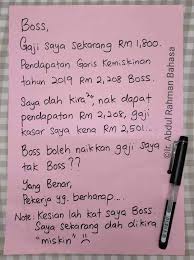 Boss,
Gaji saya sekarang RM 1,800.
Pendapatan Garis Kemiskinan
tahun 2019 RM 2,208 Boss.
Saya dah kira², nak dapat
pendapatan RM 2,208, gaji
kasar saya kena RM 2,501...
Boss boleh naikkan gaji saya
tak Boss??
Yang Benar,
Pekerja yg. berharap...
Note: Kesian lah kat saya Boss.
Saya sekarang dah dikira
"miskin"
©Ir. Abdul Rahman Bahasa